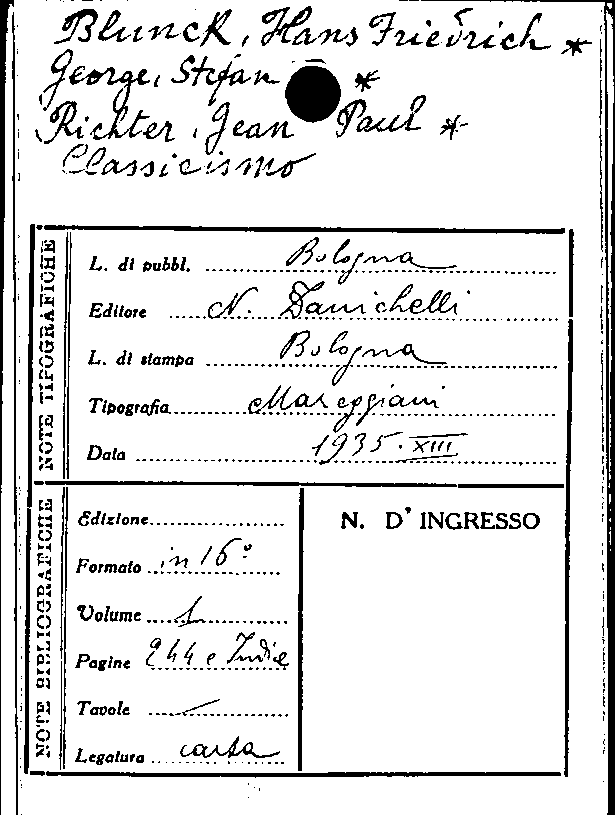 Blunck, Hans Friedrich *
George, Stefan *
Richter, Jean Paul *
Classicismo
NOTE TIPOGRAFICHE
L. di pubbl. Bologna
Editore N. Zanichelli
L. di stampa Bologna
Tipografia Mareggiani
Data 1935. XIII
NOTE BIBLIOGRAFICHE
Edizione
Formato in 16°
Volume 1
Pagine 244 e Indice
Tavole /
Legatura carta
N. D' INGRESSO